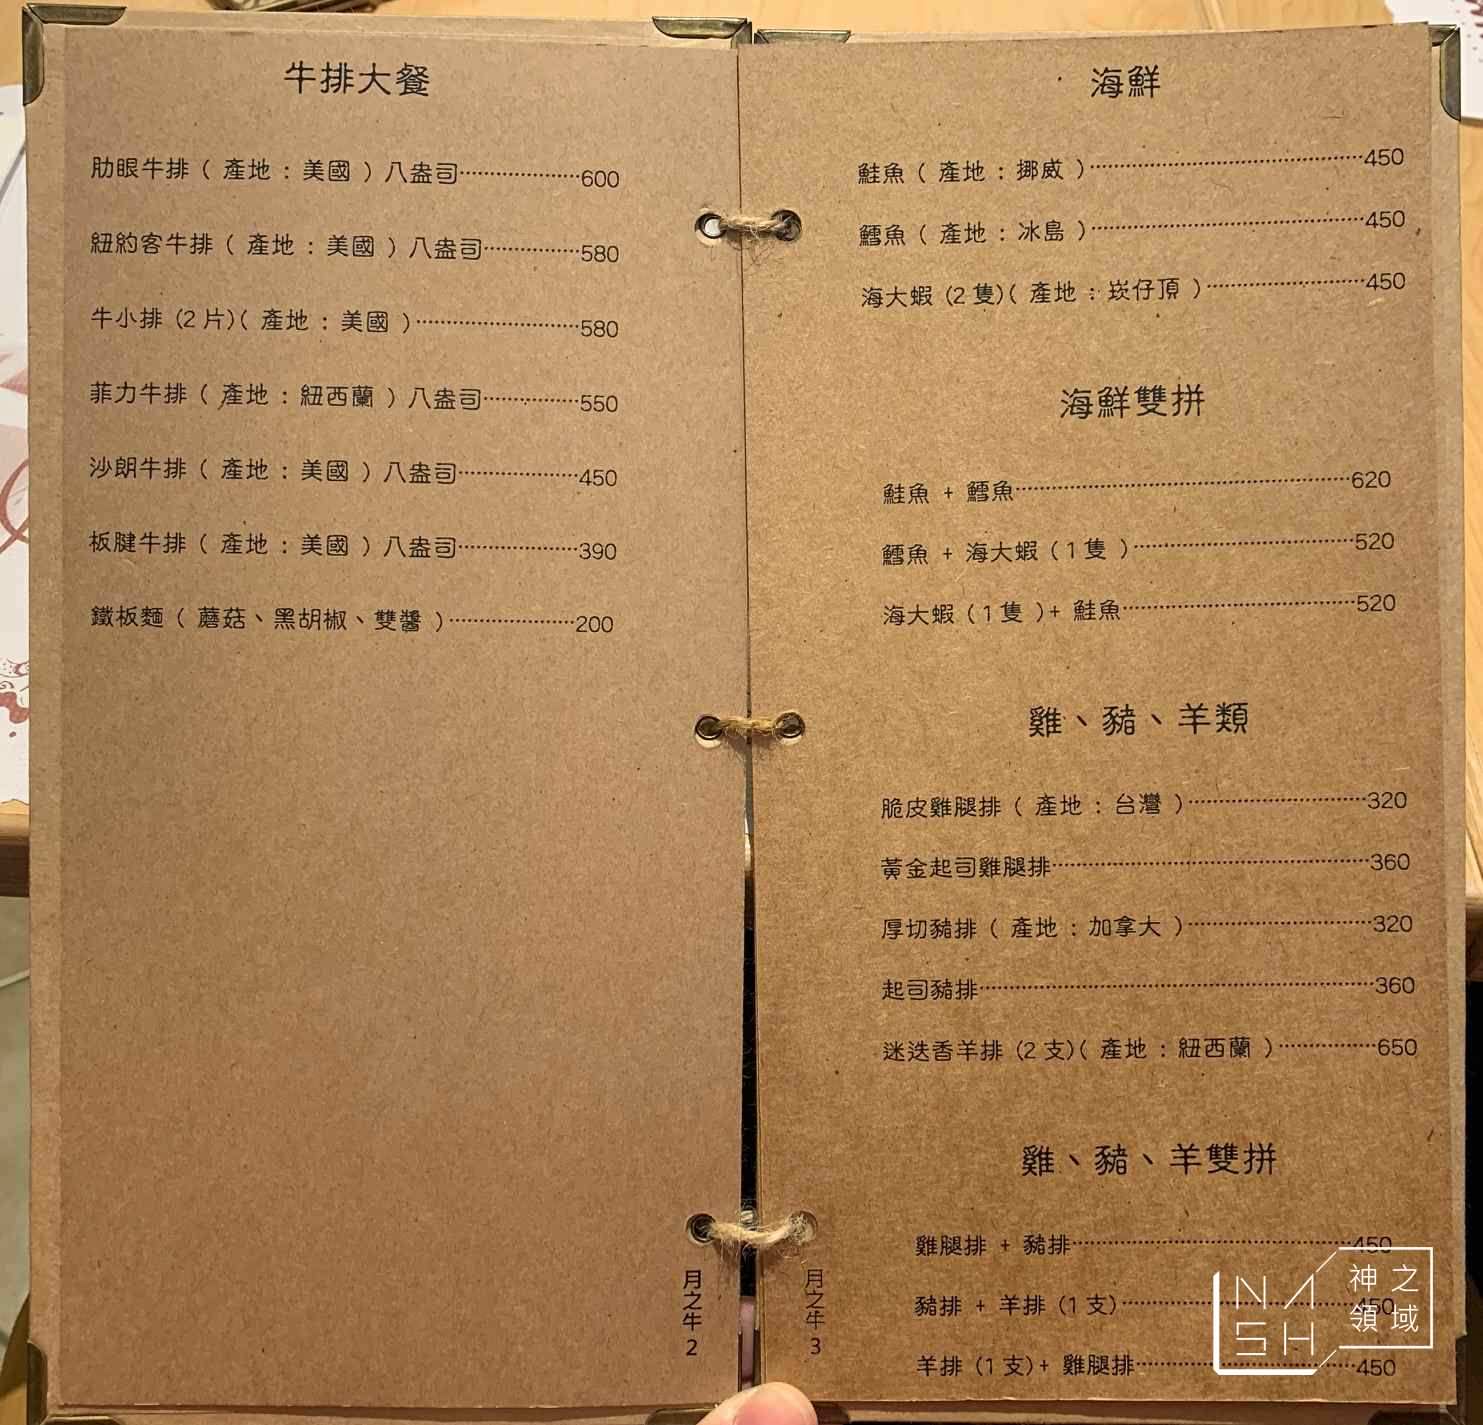 牛排大餐
肋眼牛排 ( 產地 : 美國 ) 八盎司…………………600
紐約客牛排 ( 產地 : 美國 ) 八盎司……………580
牛小排 (2 片)( 產地 : 美國 )………………………580
菲力牛排 ( 產地 : 紐西蘭 ) 八盎司……………550
沙朗牛排 ( 產地 : 美國 ) 八盎司…………………450
板腱牛排 ( 產地 : 美國 ) 八盎司…………………390
鐵板麵 ( 蘑菇、黑胡椒、雙醬 )…………………200
月之牛 2
海鮮
鮭魚 ( 產地 : 挪威 )……………………………………450
鱈魚 ( 產地 : 冰島 )……………………………………450
海大蝦 (2 隻)( 產地 : 崁仔頂 )……………………450
海鮮雙拼
鮭魚 + 鱈魚……………………………………………620
鱈魚 + 海大蝦 ( 1 隻 )………………………………520
海大蝦 ( 1 隻 )+ 鮭魚………………………………520
雞、豬、羊類
脆皮雞腿排 ( 產地 : 台灣 )…………………………320
黃金起司雞腿排…………………………………………360
厚切豬排 ( 產地 : 加拿大 )…………………………320
起司豬排……………………………………………………360
迷迭香羊排 (2 支)( 產地 : 紐西蘭 )……………650
雞、豬、羊雙拼
雞腿排 + 豬排……………………………………450
豬排 + 羊排 (1 支)………………………………450
羊排 (1 支)+ 雞腿排……………………………450
月之牛 3
NASH
神之
領域